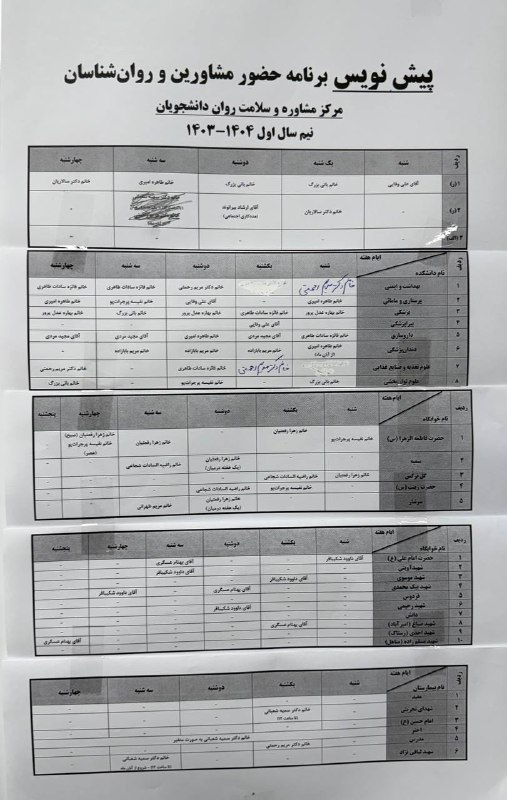 پیش نویس برنامه حضور مشاورین و روان‌شناسان
مرکز مشاوره و سلامت روان دانشجویان
نیم سال اول ۱۴۰۴-۱۴۰۳
ردیف شنبه یک شنبه دوشنبه سه شنبه چهارشنبه
۱(ر) آقای علی وفایی خانم بانی بزرگ خانم بانی بزرگ خانم طاهره امیری خانم دکتر سالاریان
۲(ر) - خانم دکتر سالاریان
(مددکاری اجتماعی) -
ردیف ایام هفته شنبه یکشنبه دوشنبه سه شنبه چهارشنبه
نام دانشکده
۱ بهداشت و ایمنی خانم دکتر مریم رحمتی خانم فائزه سادات طاهری خانم فائزه سادات طاهری
۲ پرستاری و مامائی خانم طاهره امیری - آقای علی وفایی خانم نفیسه پرجرات‌پو خانم طاهره امیری
۳ پزشکی خانم طاهره امیری خانم بهاره عدل پرور خانم بانی بزرگ خانم بهاره عدل پرور
۴ پیراپزشکی - آقای علی وفایی - - -
۵ داروسازی خانم فائزه سادات طاهری آقای مجید مردی آقای مجید مردی آقای مجید مردی
۶ دندان‌پزشکی خانم طاهره امیری (از آبان ماه) خانم مریم بابازاده خانم مریم بابازاده - -
۷ علوم تغذیه و صنایع غذایی خانم فائزه سادات طاهری - خانم دکتر مریم رحمتی
۸ علوم توان‌بخشی خانم بانی بزرگ - خانم نفیسه پرجرات‌پو - خانم بانی بزرگ
ردیف ایام هفته شنبه یکشنبه دوشنبه سه شنبه چهارشنبه پنجشنبه
نام خوابگاه
۱ حضرت فاطمه الزهرا (س) خانم نفیسه پرجرات‌پو خانم زهرا رفعتیان - خانم زهرا رفعتیان خانم زهرا رفعتیان (صبح) خانم نفیسه پرجرات‌پو (عصر) -
۲ سمیه - - خانم زهرا رفعتیان (یک هفته درمیان) خانم راضیه السادات شجاعی - -
۳ گل نرگس خانم زهرا رفعتیان خانم راضیه السادات شجاعی - - - -
۴ حضرت زینب (س) - خانم نفیسه پرجرات‌پو خانم راضیه السادات شجاعی - - -
۵ - - خانم زهرا رفعتیان (یک هفته درمیان) خانم مریم طهرانی - -
ردیف ایام هفته شنبه یکشنبه دوشنبه سه شنبه چهارشنبه پنجشنبه
نام خوابگاه
۱ حضرت امام علی (ع) آقای داوود شکیبافر - - آقای بهنام عسگری - -
۲ شهید آوینی - - - آقای داوود شکیبافر - -
۳ شهید موسوی - آقای داوود شکیبافر - - - -
۴ شهید بیک محمدی - - آقای بهنام عسگری - - -
۵ فردوس - - - - آقای داوود شکیبافر -
۶ شهید رحیمی - - آقای داوود شکیبافر - - -
۷ دانش - - - - - -
۸ شهید صباغ (امیرآباد) - آقای بهنام عسگری - - - -
۹ شهید احمدی - - - - - -
۱۰ - - - - - آقای بهنام عسگری
ردیف ایام هفته شنبه یکشنبه دوشنبه سه شنبه چهارشنبه
نام بیمارستان
۱ مفید
۲ شهدای تجریش - خانم دکتر سمیه شعبانی (تا ساعت ۱۲) - - -
۳ امام حسین (ع)
۴ اختر خانم دکتر سمیه شعبانی به صورت متغیر
۵ مدرس - خانم دکتر مریم رحمتی - - -
۶ شهید لبافی نژاد - - - خانم دکتر سمیه شعبانی